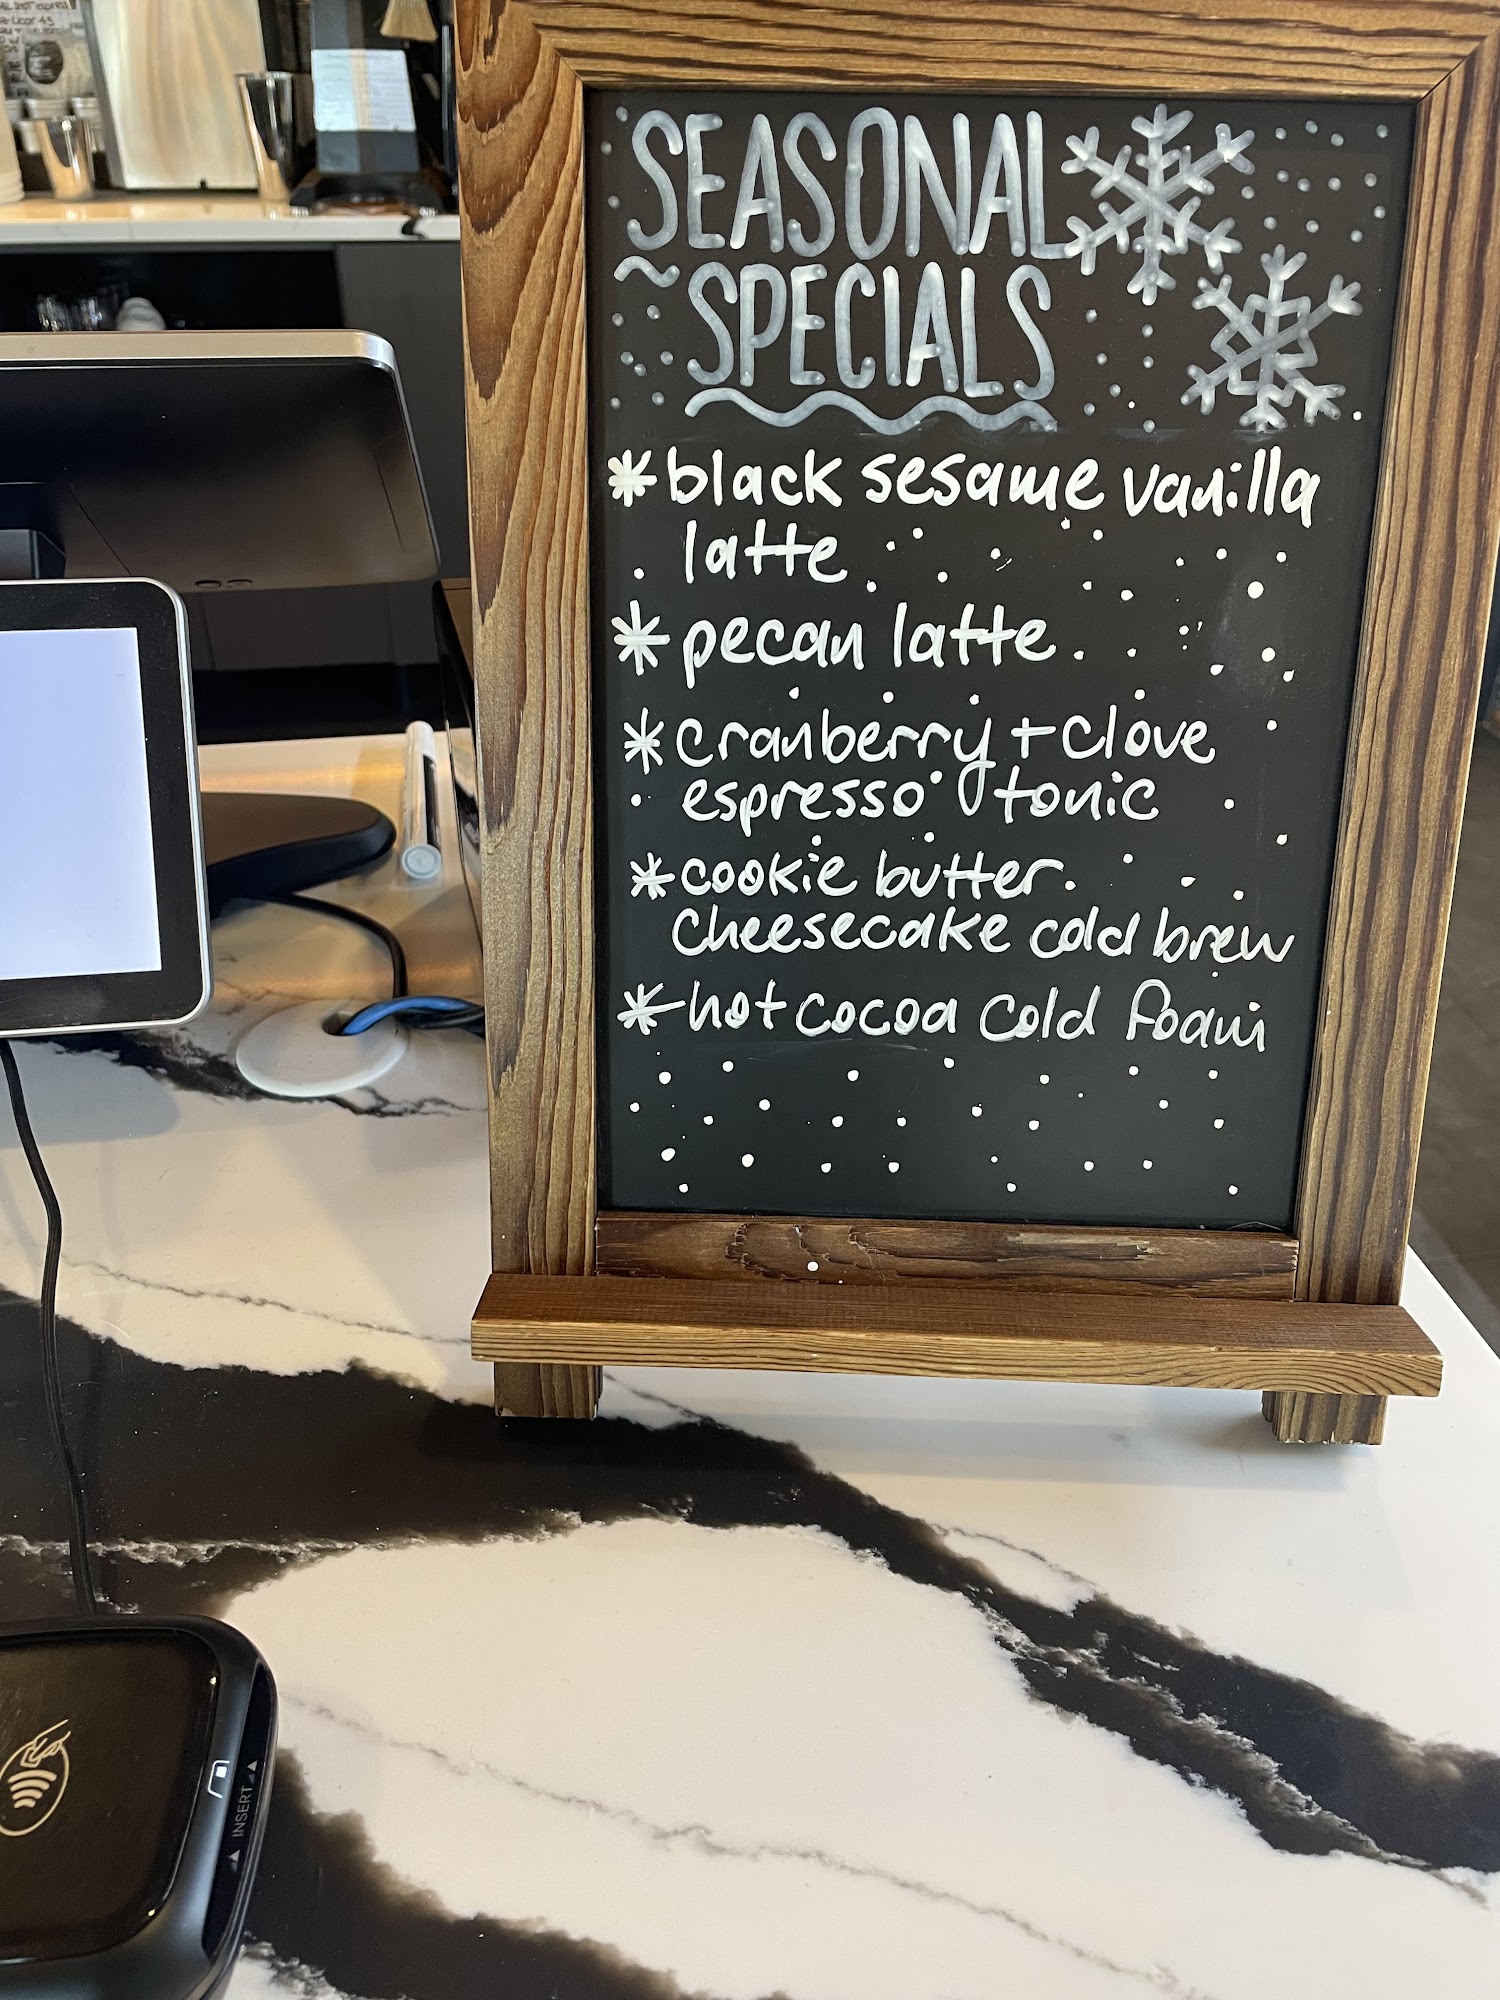 SEASONAL
SPECIALS
*black sesame vanilla
latte
*pecan latte
*cranberry + clove
espresso tonic
*cookie butter
cheesecake cold brew
*hot cocoa cold foam
INSERT